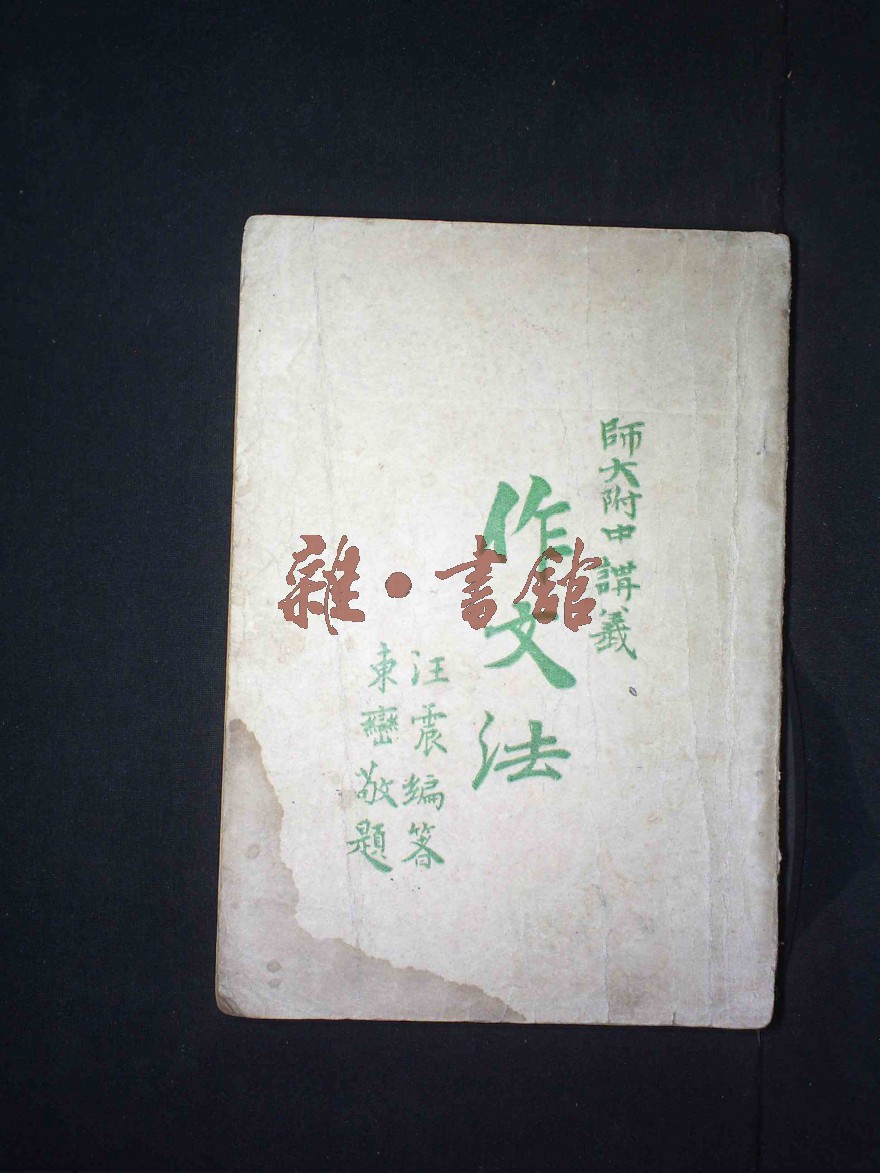 師大附中講義
作文法
汪震編箸
東巒敬題
雜·書館